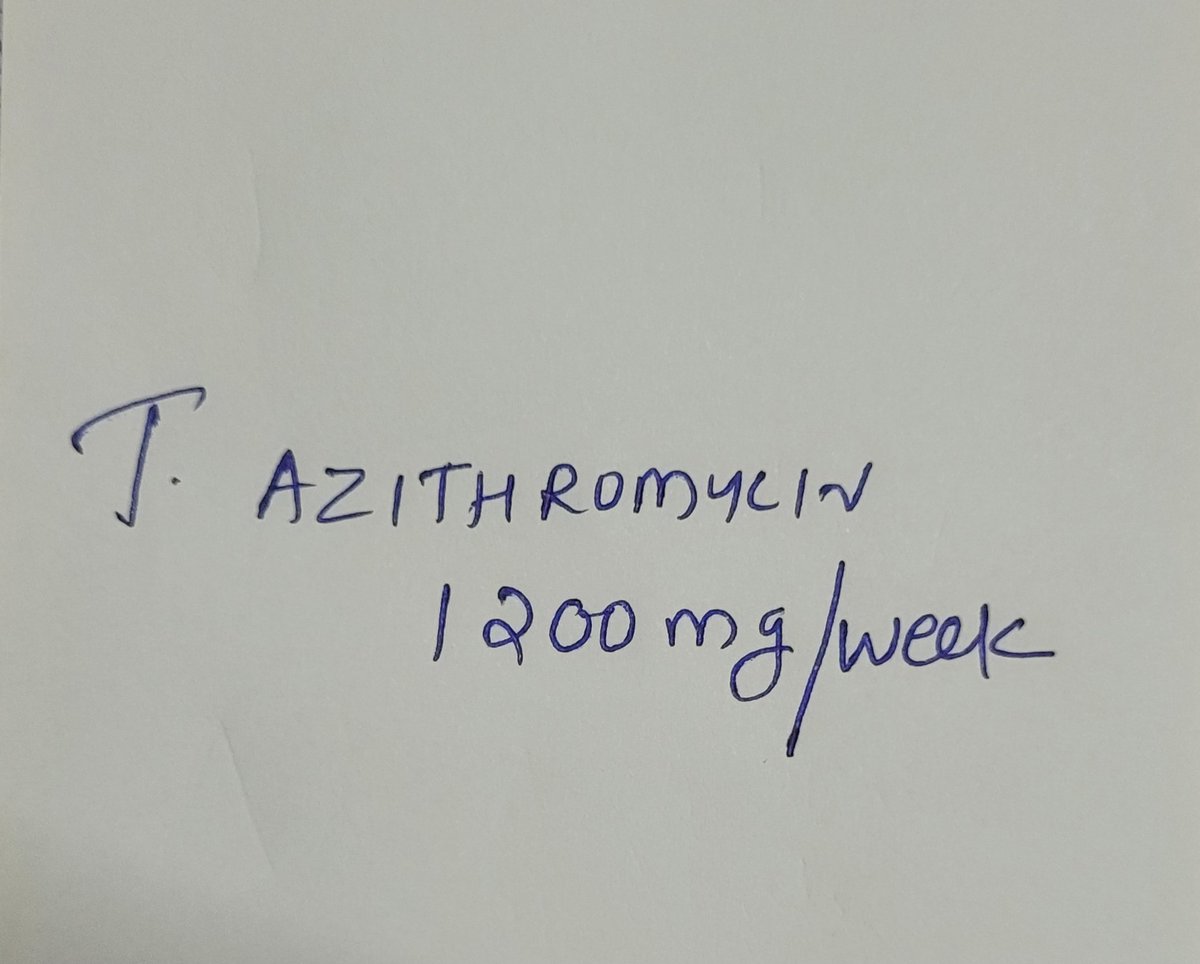 T. AZITHROMYCIN
1200 mg/week